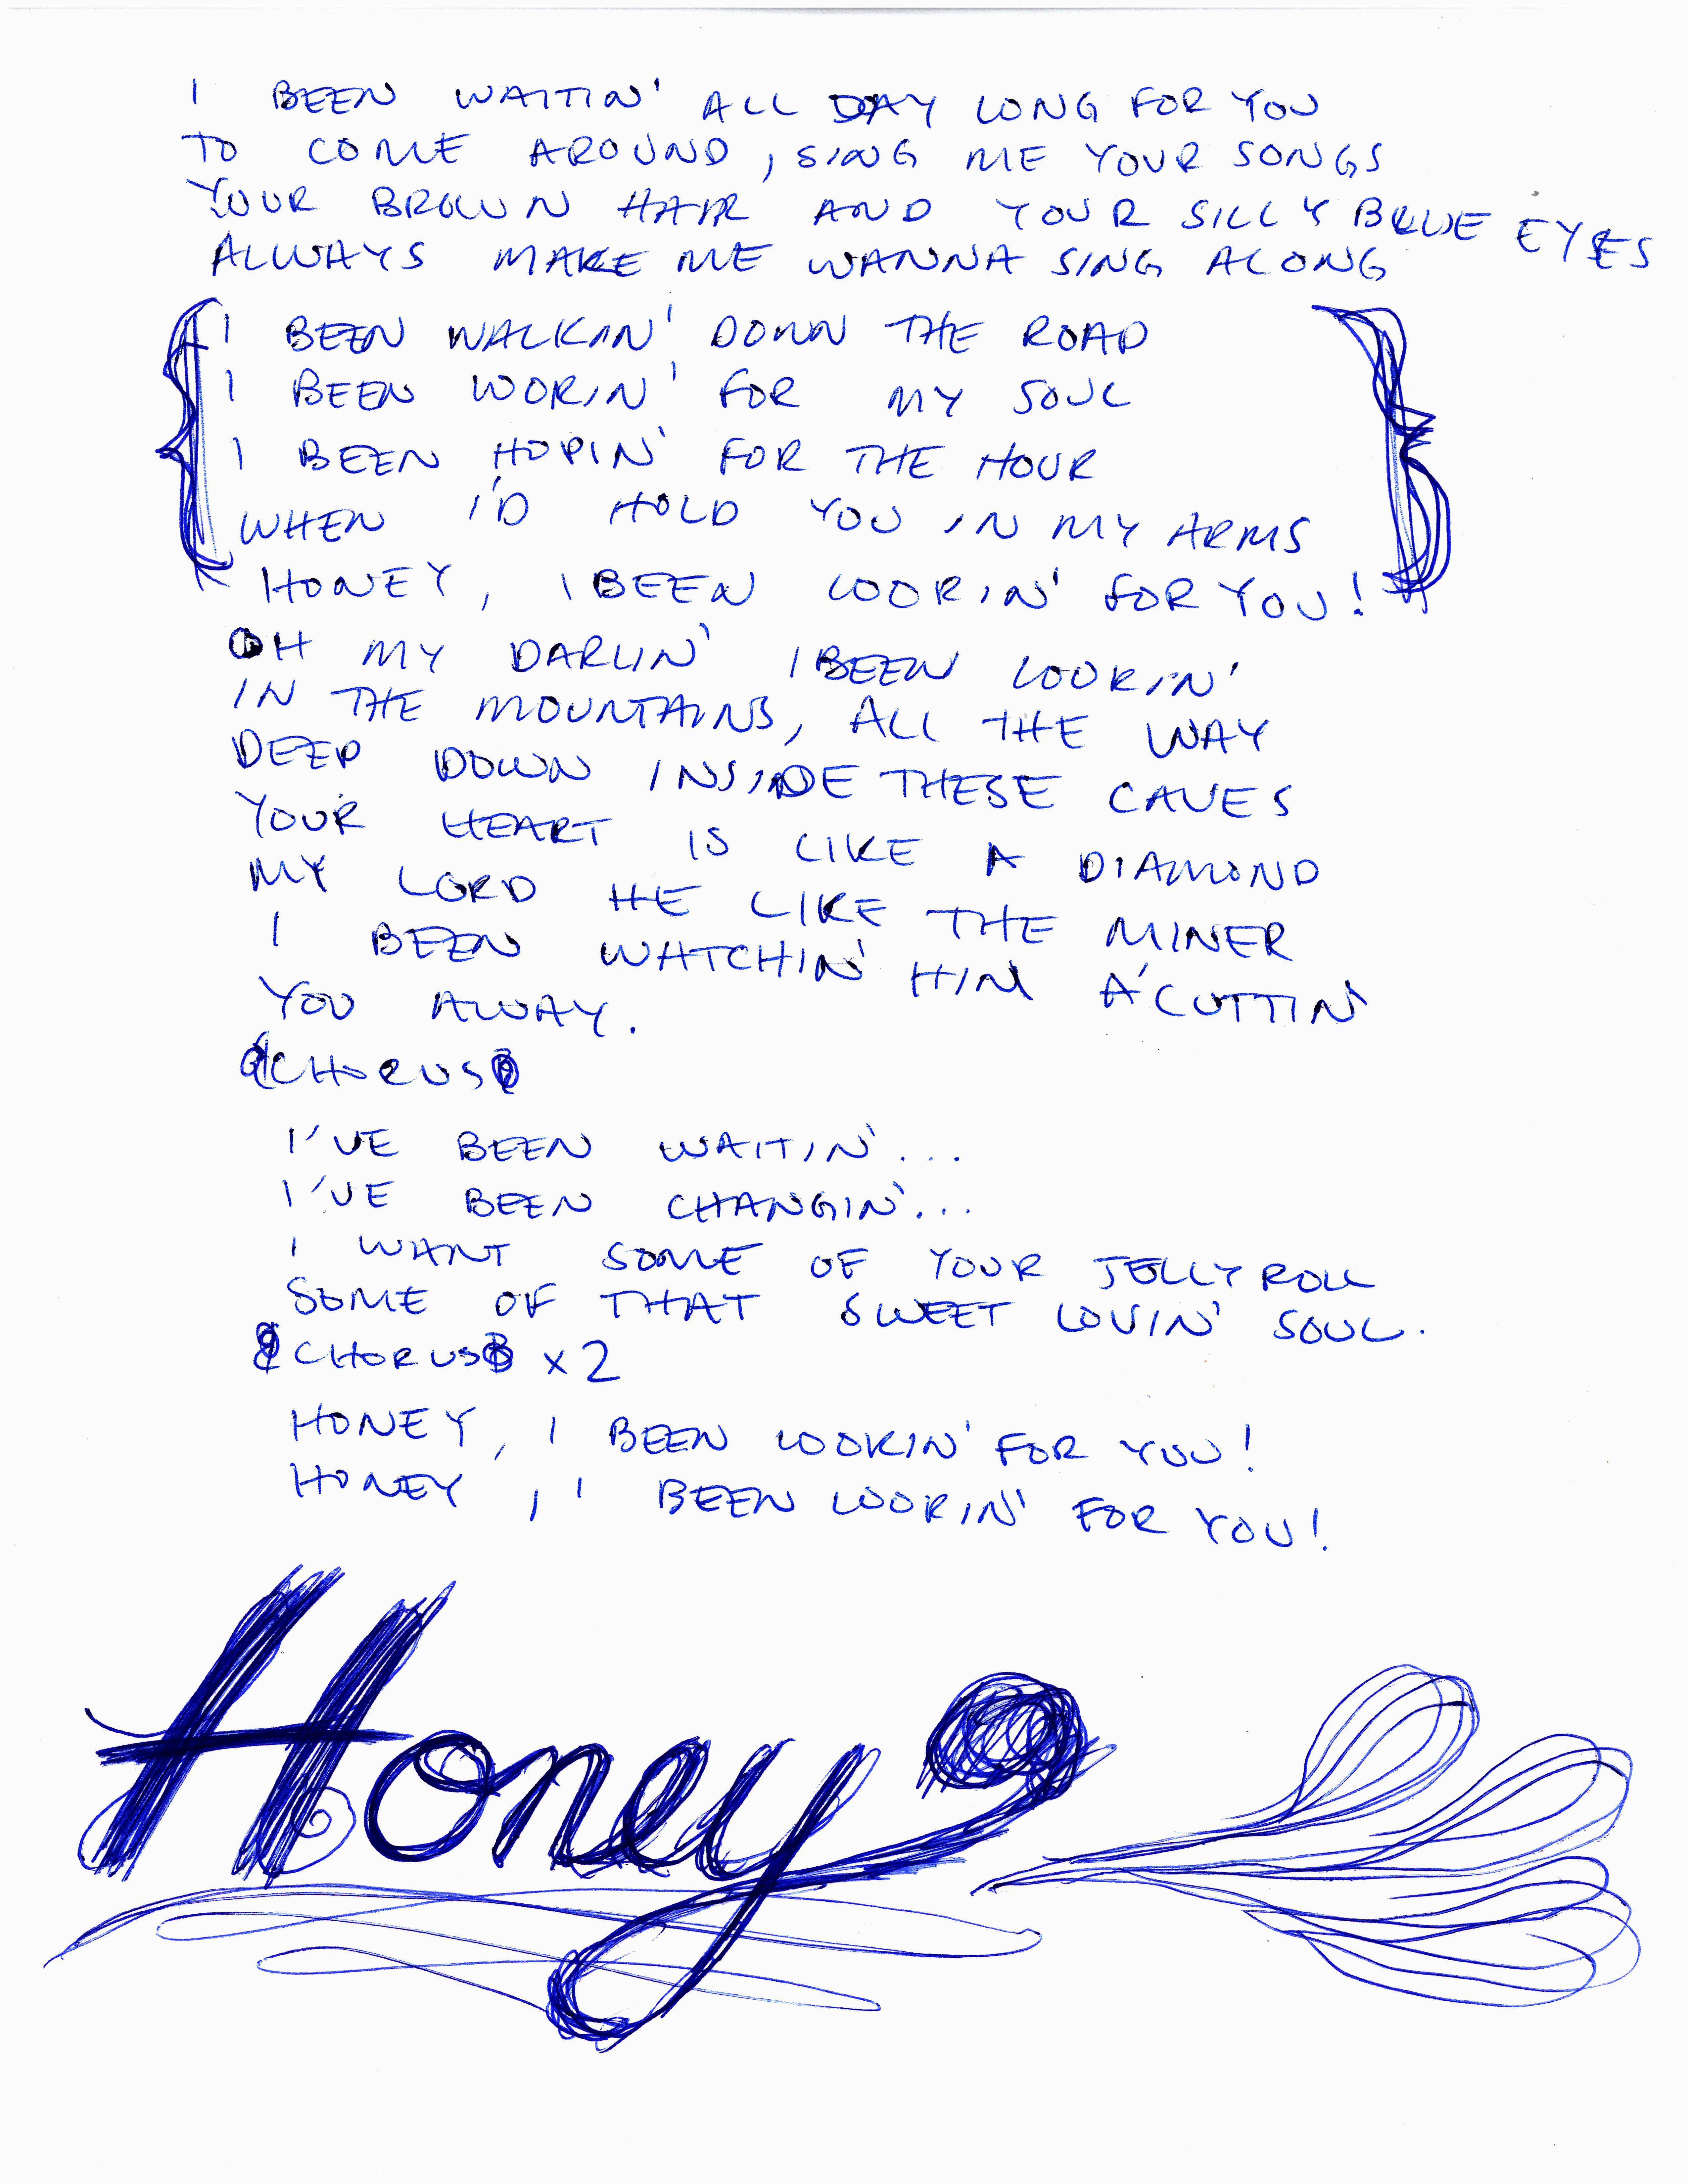 I BEEN WAITIN' ALL DAY LONG FOR YOU
TO COME AROUND, SING ME YOUR SONGS
YOUR BROWN HAIR AND YOUR SILLY BLUE EYES
ALWAYS MAKE ME WANNA SING ALONG
{ I BEEN WALKIN' DOWN THE ROAD }
I BEEN WORIN' FOR MY SOUL
I BEEN HOPIN' FOR THE HOUR
WHEN I'D HOLD YOU IN MY ARMS
HONEY, I BEEN LOOKIN' FOR YOU!
OH MY DARLIN' I BEEN LOOKIN'
IN THE MOUNTAINS, ALL THE WAY
DEEP DOWN INSIDE THESE CAVES
YOUR HEART IS LIKE A DIAMOND
MY LORD HE LIKE THE MINER
I BEEN WHATCHIN' HIM A'CUTTIN'
YOU AWAY.
{CHORUS}
I'VE BEEN WAITIN'...
I'VE BEEN CHANGIN'...
I WANT SOME OF YOUR JELLY ROLL
SOME OF THAT SWEET LOVIN' SOUL.
{CHORUS} x2
HONEY, I BEEN LOOKIN' FOR YOU!
HONEY, I BEEN LOOKIN' FOR YOU!
Honey